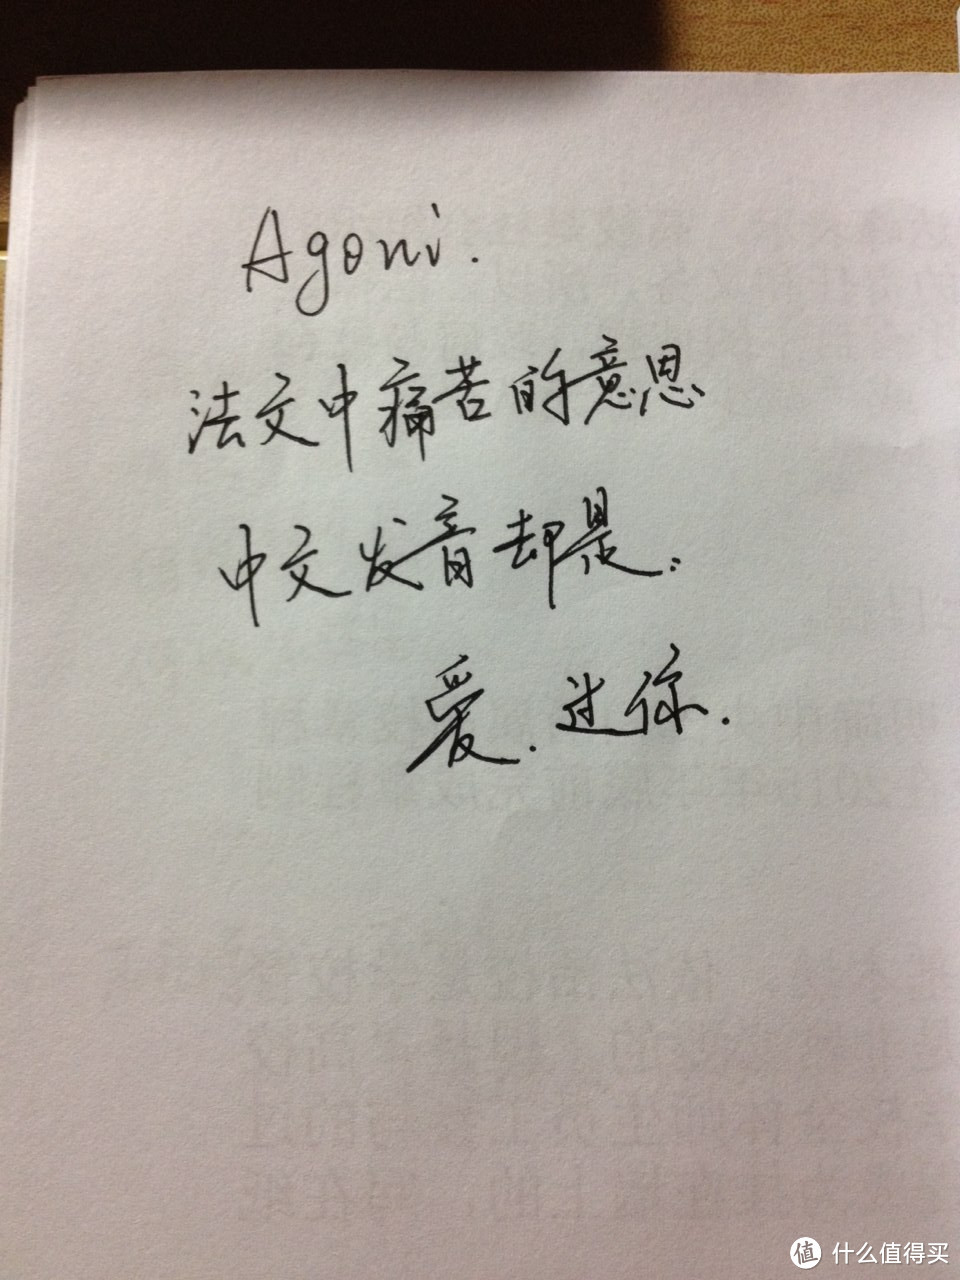 Agoni.
法文中痛苦的意思
中文发音却是:
爱.过你.
值 什么值得买